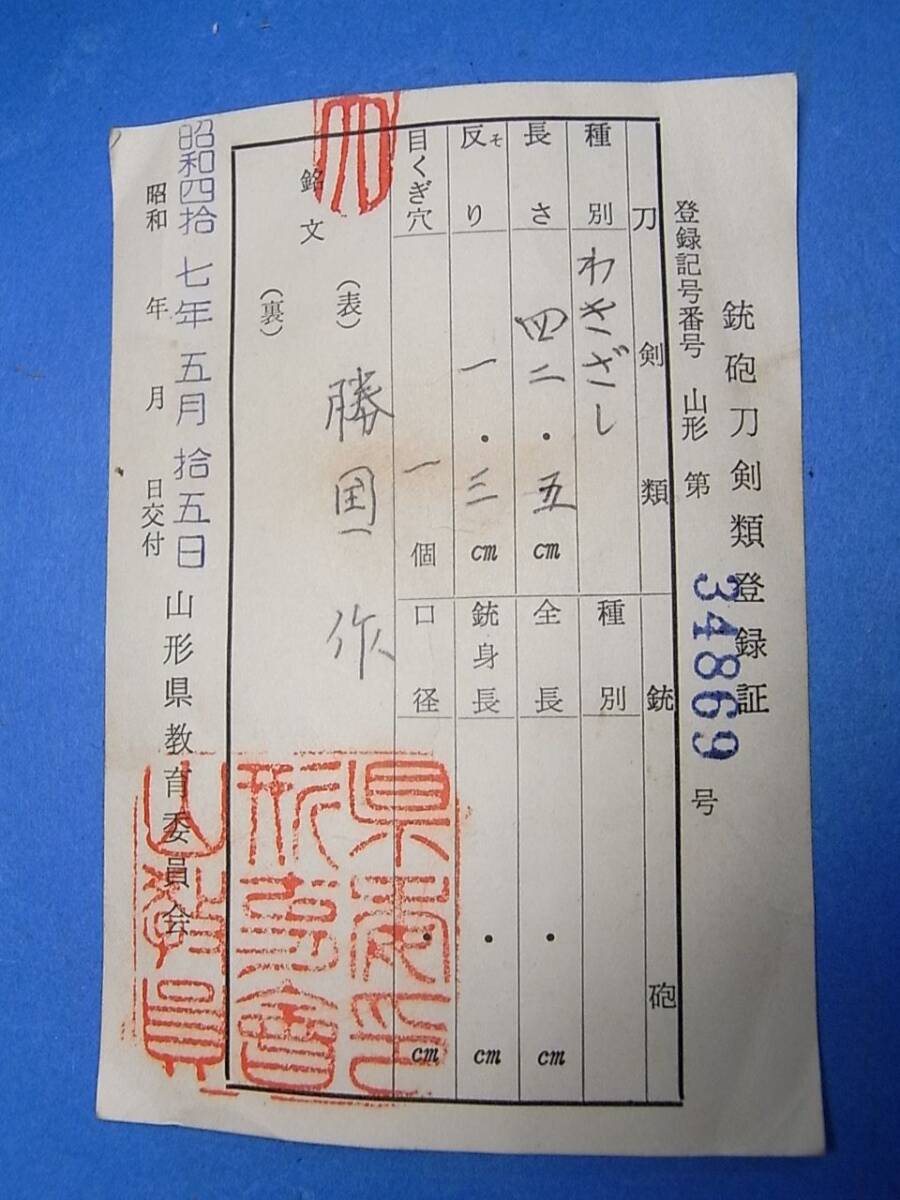 銃砲刀剣類登録証
登録記号番号 山形 第 34869 号
刀剣類
種別 わきざし
長さ 四二・五 cm
反り そ 一・三 cm
目くぎ穴 一 個
銃砲
種別
全長 ・ cm
銃身長 ・ cm
口径 ・ cm
銘文
(表) 勝国作
(裏)
昭和四拾七年五月拾五日
昭和 年 月 日交付
山形県教育委員会